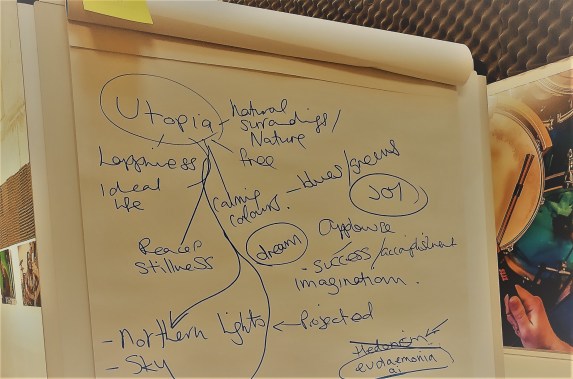 Utopia
- Natural
surrondings/
Nature
free
Happiness
Ideal
life
calming
colours.
- blues/greens
JOY
dream
Applause
- success/accomplishment
imagination.
Peace
Stillness
- Northern lights
- Sky
Projected
Hedonism
eudaemonia
ai